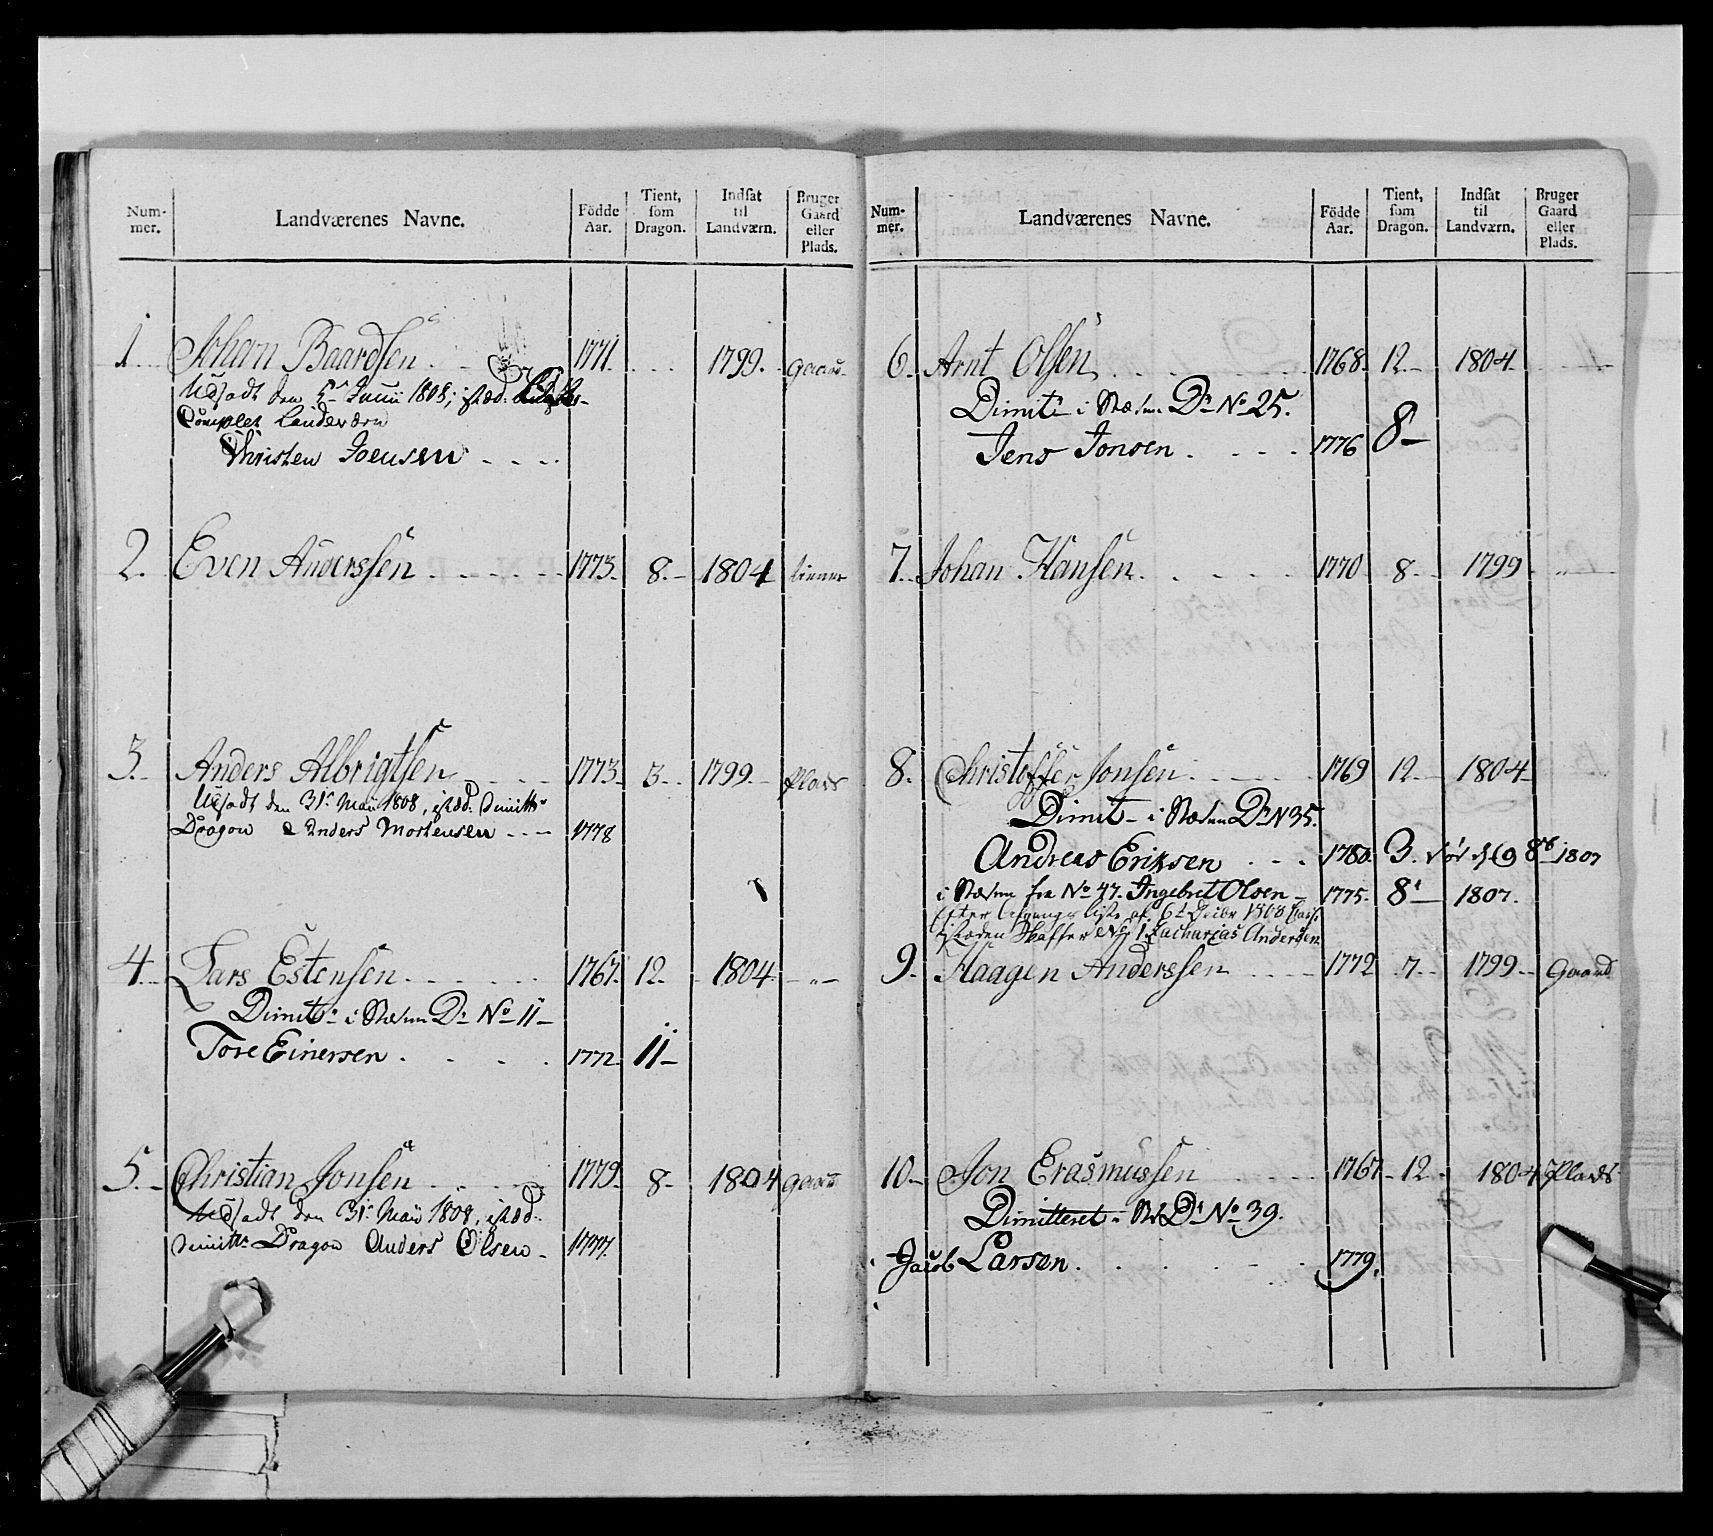 Num-
mer.
Landværenes Navne.
Födde
Aar.
Tient,
som
Dragon.
Indsat
til
Landværn.
Bruger
Gaard
eller
Plads.
1. Johan Baardsen 1771. 1799. gaard
Udsadt den 5te Junii 1808, isted
Complet Landeværn
Christen Joensen
2. Even Anderssen 1773. 8. 1804
3. Anders Albrigtsen 1773. 3. 1799. plads
Udsadt den 31te Maii 1808, isted. dimitt.
Dragon Anders Mortensen 1778
4. Lars Estensen 1767. 12. 1804. -"-
Dimitr i Stæden Dr No 11
Tore Einersen 1772. 11
5. Christian Jonsen 1779. 8. 1804 gaard
Udsadt den 31te Maii 1808, isted.
dimittr Dragon Anders Olsen 1777.
Num-
mer.
Landværenes Navne.
Födde
Aar.
Tient,
som
Dragon.
Indsat
til
Landværn.
Bruger
Gaard
eller
Plads.
6. Arnt Olsen 1768. 12. 1804.
Dimitr i Stæden Dr No 25.
Jens Jonsen 1776 8
7. Johan Hansen 1770 8. 1799 -"-
8. Christoffer Jonsen 1769 12. 1804
Dimit i Stæden Dr N 35.
Andreas Eriksen 1780. 3. 1807
i Stæden fra No 47. Ingebret Olsen 1775. 8 1807.
Efter liste af 6te 1808
istæden No 1 Zacharias Andersen
9. Haagen Anderssen 1772 7. 1799 Gaard
10. Jon Erasmussen 1767. 12. 1804 Plads
Dimitteret i Sted Dr No 39.
Jacob Larsen 1779.